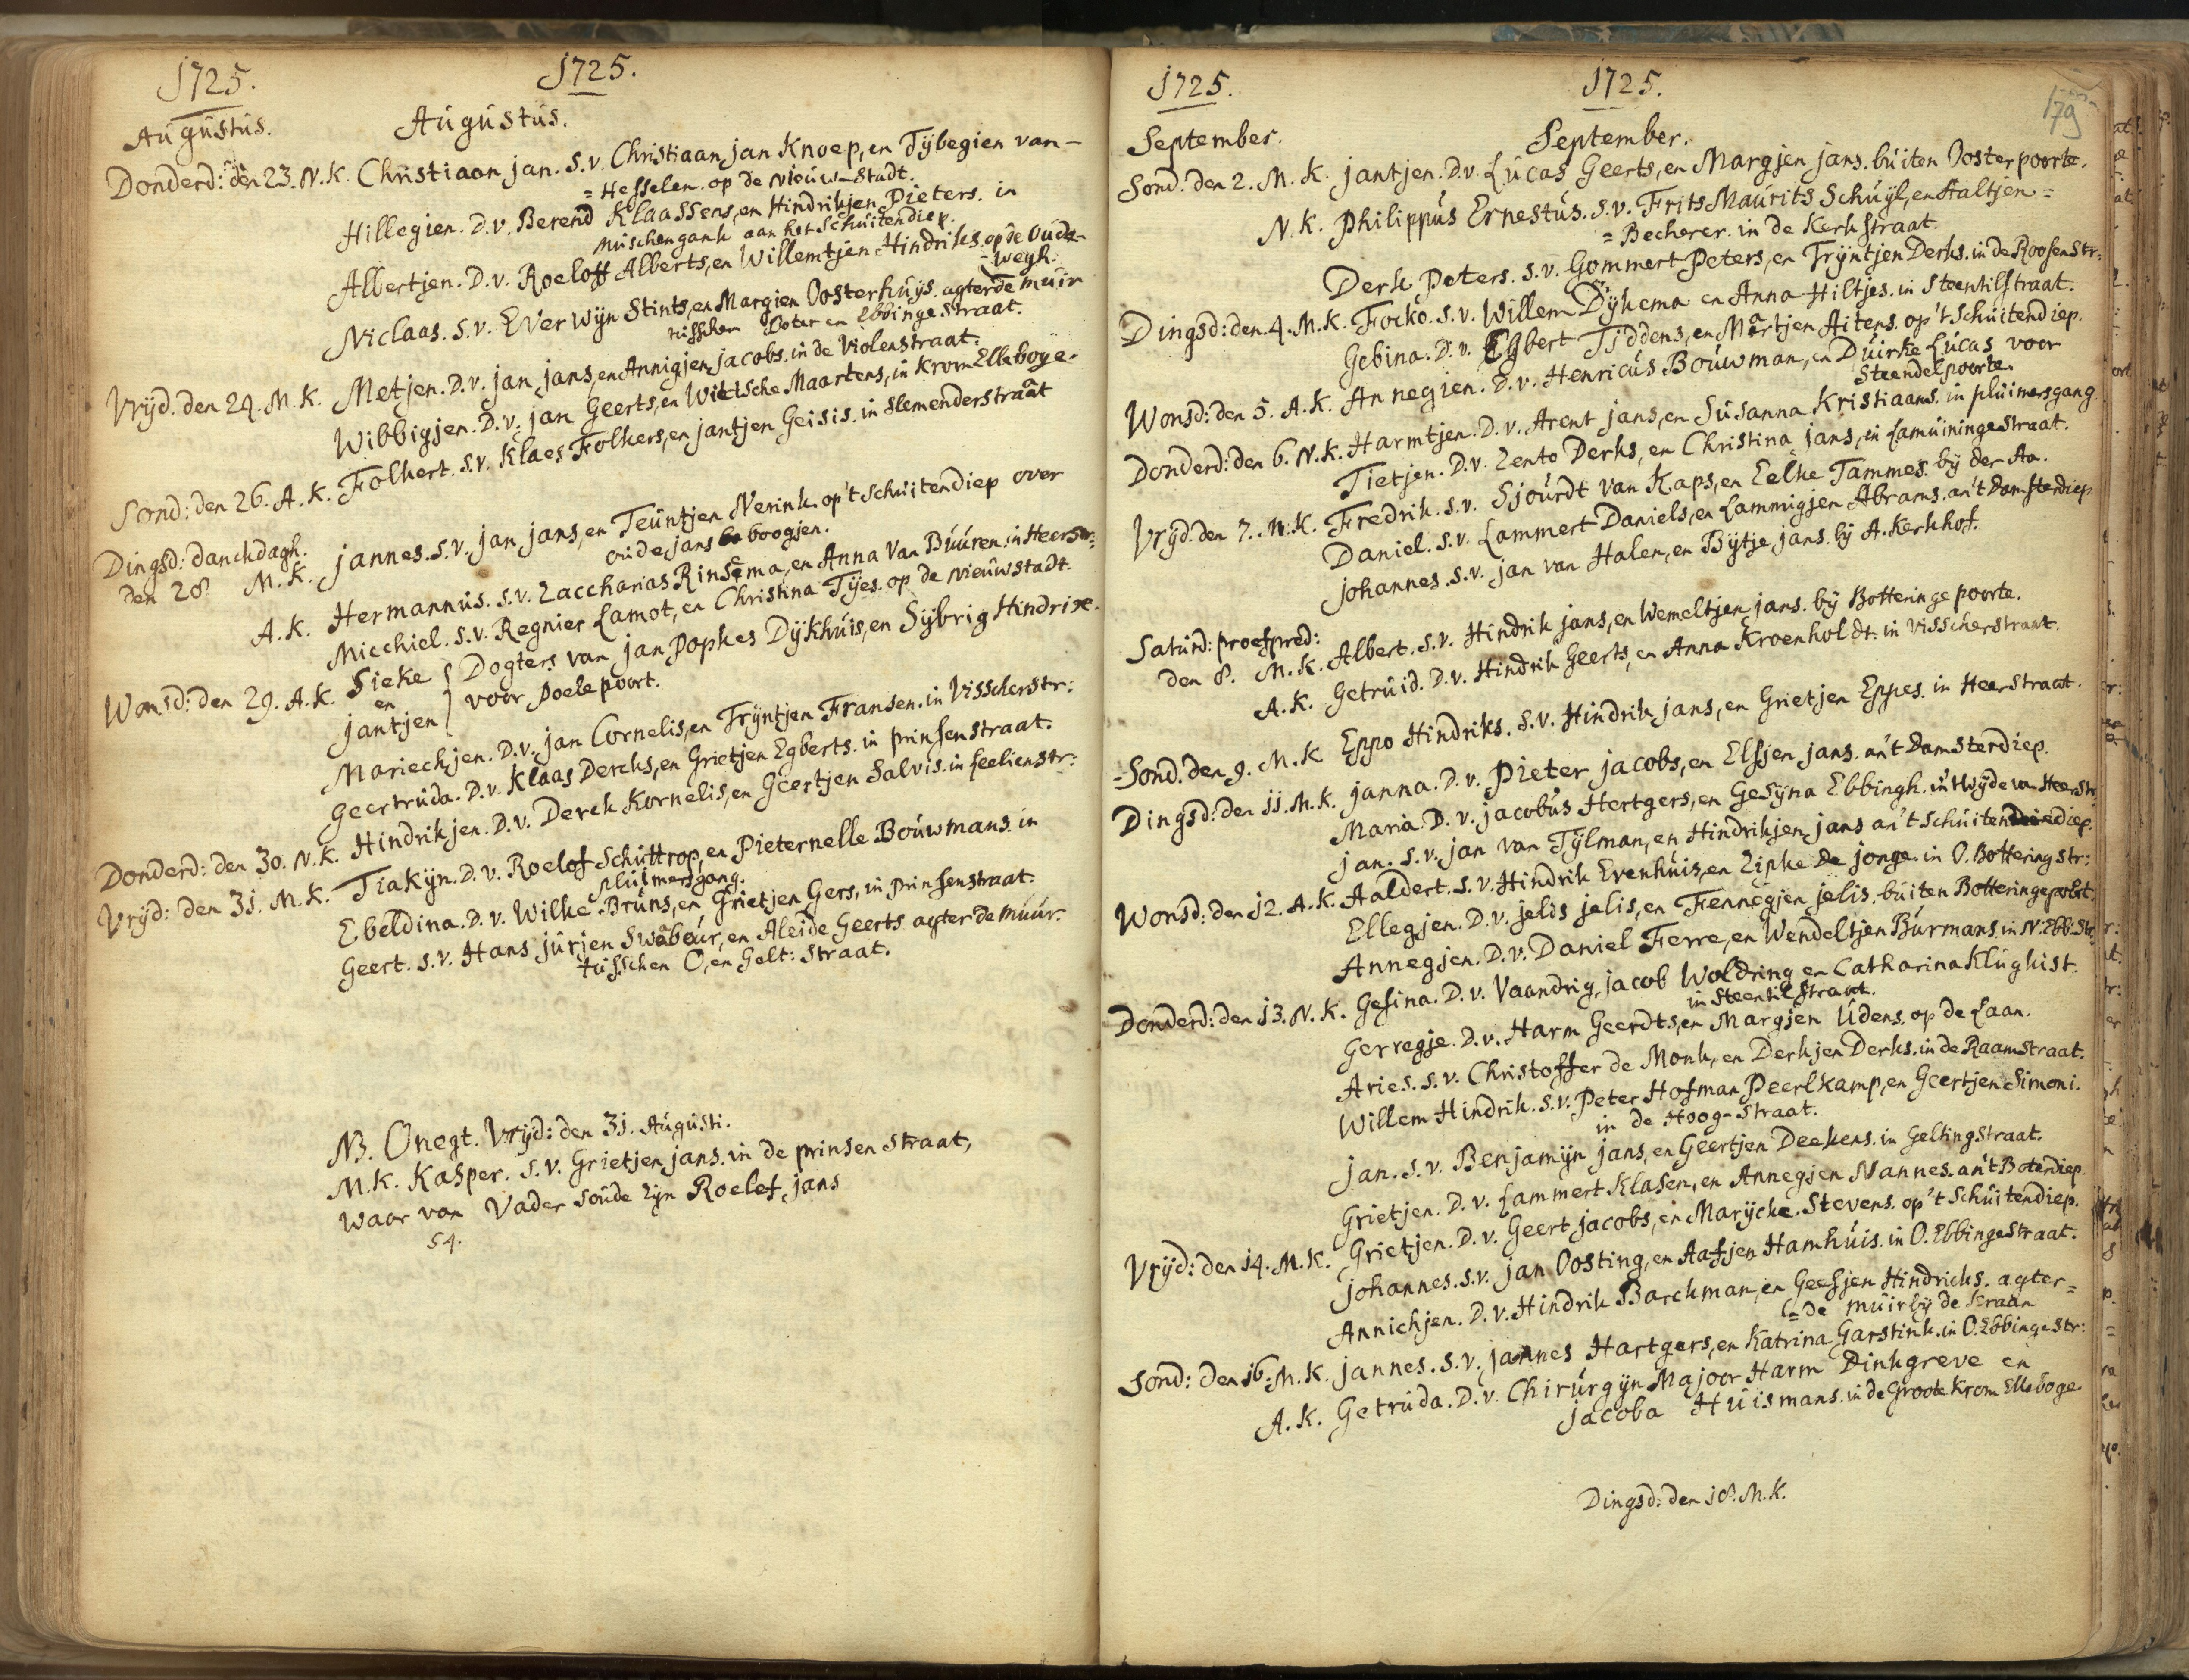 1725. 1725.
Augustus. Augustus.
Donderd: den 23. N.K. Christiaan jan. S.v. Christiaan jan Knoep, en Tÿbegien van -
= Hesselen. op de Nieuw-Stadt.
Hillegien. D.v. Berend Klaassens, en Hindrikjen Pieters. in
Muschengank aan het Schuitendiep.
Albertjen. D.v. Roeloff Alberts, en Willemtjen Hindriks. op de Oude-
- wegh.
Niclaas. S.v. Everwijn Stints, en Margien Oosterhuÿs. agter de muir
tusschen Boter en Ebbinge Straat.
Vrijd. den 24. M.K. Metjen. D.v. jan jans, en Annigjen jacobs. in de Violenstraat.
Wibbigjen. D.v. jan Geerts, en Wietsche Maartens, in Krom Elleboge.
Sond: den 26. A.K. Folkert. S.v. Klaes Folkers, en jantjen Geisis. in Slemenderstraat
Dingsd: Danckdagh.
den 28 M.K. jannes. S.v. jan jans, en Teuntjen Nerink. op 't Schuitendiep over
oude jans boogjen.
A.K. Hermannus. S.v. Zaccharias Rinsema, en Anna Van Buuren. in Heerstr:
Micchiel. S.v. Regnier Lamot, en Christina Tÿes. op de Nieuwstadt.
Wonsd: den 29. A.K. Sieke { Dogters van jan Popkes Dÿkhuis, en Sÿbrig Hindrix.
en
jantjen } voor Poelepoort.
Mariechjen. D.v. jan Cornelis, en Trÿntjen Fransen. in Visscherstr:
Geertruida. D.v. Klaas Dercks, en Grietjen Egberts. in Prinsenstraat.
Donderd: den 30. N.K. Hindrikjen. D.v. Derck Kornelis, en Geertjen Salvis. in feelienstr:
Vrijd: den 31. M.K. Tiakÿn. D.v. Roelof Schuttrop, en Pieternelle Bouwmans. in
pluimersgang.
Ebeldina. D.v. Wilke Bruns, en Grietjen Gers, in Prinsenstraat.
Geert. S.v. Hans jurjen Swabour, en Aleide Geerts agter de muur.
tusschen O, en Gelt: Straat.
NB. Onegt. Vrijd: den 31. Augusti.
M.K. Kasper. S.v. Grietjen jans. in de prinsen Straat,
waar van Vader soude zijn Roelef jans
54.
1725. 1725.
179
September. September.
Sond. den 2. M.K. jantjen. D.v. Lucas Geerts, en Margjen jans. buiten Oosterpoorte.
N.K. Philippus Ernestus. S.v. Frits Maurits Schuyl, en Aaltjen =
= Becherer. in de Kerkstraat.
Derk Peters. S.v. Gommert Peters, en Trÿntjen Derks. in de Roosenstr:
Dingsd: den 4. M.K. Focko. S.v. Willem Dÿkema en Anna Hiltjes. in Steentilstraat.
Gebina. D.v. Egbert Tiddens, en Martjen Aitens. op 't Schuitendiep.
Wonsd: den 5. A.K. Annegien. D.v. Henricus Bouwman, en Duirke Lucas voor
Steendelpoorte.
Donderd: den 6. N.K. Harmtjen. D.v. Arent jans, en Susanna Kristiaans. in pluimersgang
Tietjen. D.v. Zento Derks, en Christina jans, in Lamuiningestraat.
Vrÿd. den 7. N.K. Fredrik. S.v. Sjourdt van Kaps, en Eelke Tammes. bÿ der Aa.
Daniel. S.v. Lammert Daniels, en Lammigjen Abrams. an 't Damsterdiep
johannes. S.v. jan van Halen, en Bÿtje jans. bÿ A. Kerkhof.
Saturd: proefpred:
den 8. M.K. Albert. S.v. Hindrik jans, en Wemeltjen jans. bÿ Botteringe poorte.
A.K. Getruid. D.v. Hindrik Geerts, en Anna Kroenholdt. in Visscherstraat.
Sond. den 9. M.K Eppo Hindriks. S.v. Hindrik jans, en Grietjen Eppes. in Heerstraat.
Dingsd: den 11. M.K. janna. D.v. Pieter jacobs, en Elsjen jans. an 't Damsterdiep.
Maria. D.v. jacobus Hertgers, en Gesÿna Ebbingh. in 't Wÿde van Heerstr
jan. S.v. jan van Tÿlman, en Hindrikjen jans an 't Schuitendiep.
Wonsd: den 12. A.K. Aaldert. S.v. Hindrik Evenhuis, en Zipke de jonge. in O. Botteringstr:
Ellegjen. D.v. jelis jelis, en Fennegjen jelis. buiten Botteringepoort.
Annegjen. D.v. Daniel Ferre, en Wendeltjen Burmans. in N. Ebb. Str:
Donderd: den 13. N.K. Gesina. D.v. Vaandrig, jacob Woldring en Catharina Klugkist.
in Steentil Straat.
Gerregje. D.v. Harm Geerdts, en Margjen Udens. op de Laan.
Aries. S.v. Christoffer de Monk, en Derkjen Derks. in de Raamstraat.
Willem Hindrik. S.v. Peter Hofman Peerlkamp, en Geertjen Simoni.
in de Hoog-Straat.
jan. S.v. Benjamÿn jans, en Geertjen Deekens. in Geltingstraat.
Grietjen. D.v. Lammert Klasen, en Annegjen Nannes. an 't Boterdiep.
Vrÿd: den 14. M.K. Grietjen. D.v. Geert jacobs, en Marÿcke Stevens. op 't Schuitendiep.
johannes. S.v. jan Oosting, en Aafjen Hamhuis. in O. Ebbingestraat.
Annichjen. D.v. Hindrik Barckman, en Geesjen Hindricks. agter =
= de muir bÿ de Kraan
Sond: den 16: M.K. jannes. S.v. jannes Hartgers, en Katrina Garstink. in O. Ebbinge Str:
A.K. Getruda. D.v. Chirurgÿn Majoor Harm Dinkgreve en
jacoba Huismans. in de Groote Krom Elleboge.
Dingsd: den 18. M.K.